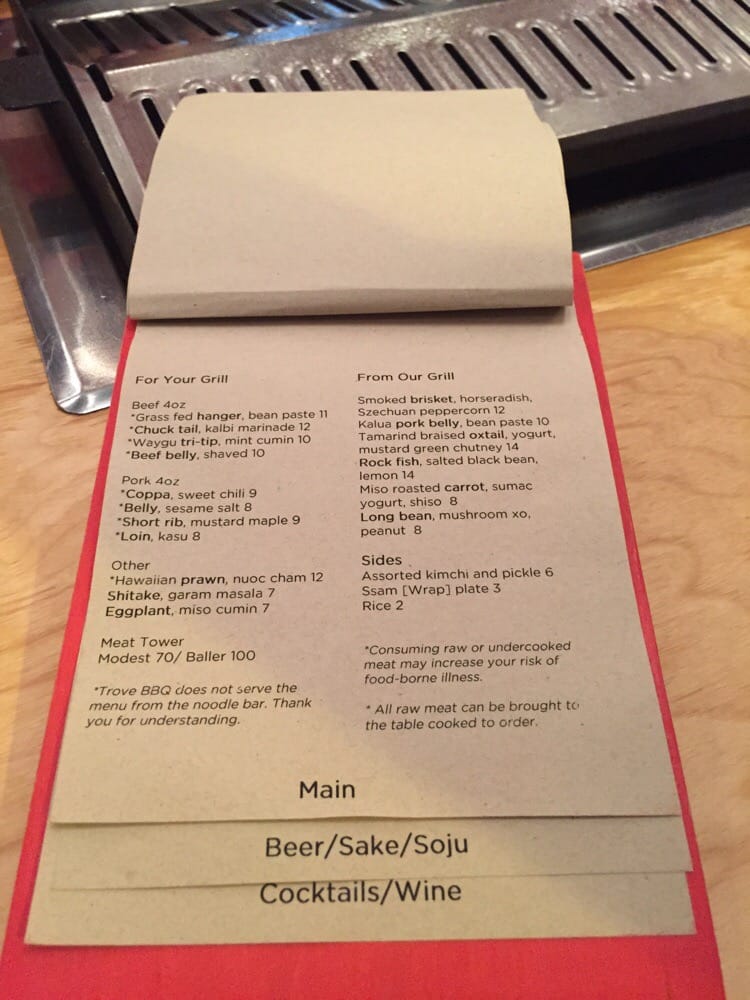 For Your Grill
Beef 4oz
*Grass fed hanger, bean paste 11
*Chuck tail, kalbi marinade 12
*Waygu tri-tip, mint cumin 10
*Beef belly, shaved 10
Pork 4oz
*Coppa, sweet chili 9
*Belly, sesame salt 8
*Short rib, mustard maple 9
*Loin, kasu 8
Other
*Hawaiian prawn, nuoc cham 12
Shitake, garam masala 7
Eggplant, miso cumin 7
Meat Tower
Modest 70/ Baller 100
*Trove BBQ does not serve the
menu from the noodle bar. Thank
you for understanding.
From Our Grill
Smoked brisket, horseradish,
Szechuan peppercorn 12
Kalua pork belly, bean paste 10
Tamarind braised oxtail, yogurt,
mustard green chutney 14
Rock fish, salted black bean,
lemon 14
Miso roasted carrot, sumac
yogurt, shiso 8
Long bean, mushroom xo,
peanut 8
Sides
Assorted kimchi and pickle 6
Ssam [Wrap] plate 3
Rice 2
*Consuming raw or undercooked
meat may increase your risk of
food-borne illness.
* All raw meat can be brought to
the table cooked to order.
Main
Beer/Sake/Soju
Cocktails/Wine